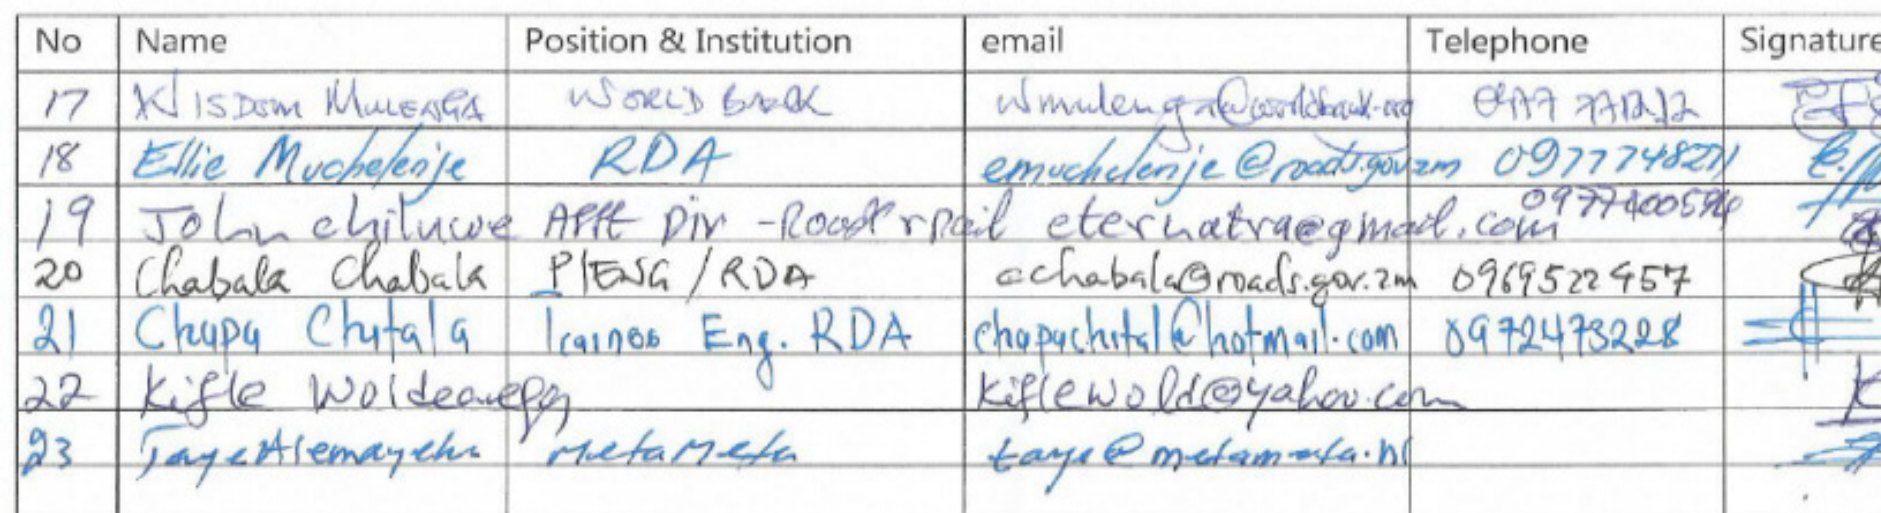 No Name Position & Institution email Telephone Signature
17 WISDOM MULENGA WORLD BANK wmulenga@worldbank.org 0977 771212
18 Ellie Muchelenje RDA emuchelenje@roads.gov.zm 0977748271
19 John chiluwe Div - Road & rail eternatra@gmail.com
20 Chabala Chabala P/ENG / RDA cchabala@roads.gov.zm 0969522457
21 Chapa Chitala Eng. RDA chapachital@hotmail.com 0972473228
22 Kifle kiflewold@yahoo.com
23 Taye Alemayehu MetaMeta taye@metameta.nl